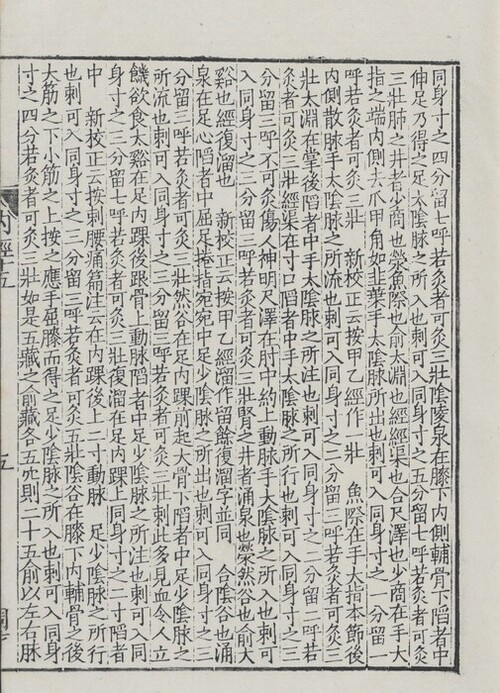 同身寸之四分留七呼若灸者可灸三壯陰陵泉在膝下內側輔骨下陷者中
伸足乃得之足太陰脉之所入也刺可入同身寸之五分留七呼若灸者可灸
三壯肺之井者少商也滎魚際也俞太淵也經經渠也合尺澤也少商在手大
指之端內側去爪甲角如韭葉手太陰脉所出也刺可入同身寸之一分留一
呼若灸者可灸三壯 新校正云按甲乙經作一壯 魚際在手大指本節後
內側散脉手太陰脉之所流也刺可入同身寸之二分留三呼若灸者可灸三
壯太淵在掌後陷者中手太陰脉之所注也刺可入同身寸之二分留二呼若
灸者可灸三壯經渠在寸口陷者中手太陰脉之所行也刺可入同身寸之三
分留三呼不可灸傷人神明尺澤在肘中約上動脉手太陰脉之所入也刺可
入同身寸之三分留三呼若灸者可灸三壯腎之井者涌泉也滎然谷也俞大
谿也經復溜也 新校正云按甲乙經溜作留餘復溜字並同 合陰谷也涌
泉在足心陷者中屈足捲指宛宛中足少陰脉之所出也刺可入同身寸之三
分留三呼若灸者可灸三壯然谷在足內踝前起大骨下陷者中足少陰脉之
所流也刺可入同身寸之三分留三呼若灸者可灸三壯刺此多見血令人立
饑欲食太谿在足內踝後跟骨上動脉陷者中足少陰脉之所注也刺可入同
身寸之三分留七呼若灸者可灸三壯復溜在足內踝上同身寸之二寸陷者
中 新校正云按刺腰痛篇注云在內踝後上二寸動脉 足少陰脉之所行
也刺可入同身寸之三分留三呼若灸者可灸五壯陰谷在膝下內輔骨之後
大筋之下小筋之上按之應手屈膝而得之足少陰脉之所入也刺可入同身
寸之四分若灸者可灸三壯如是五藏之俞藏各五穴則二十五俞以左右脉
內經五
五